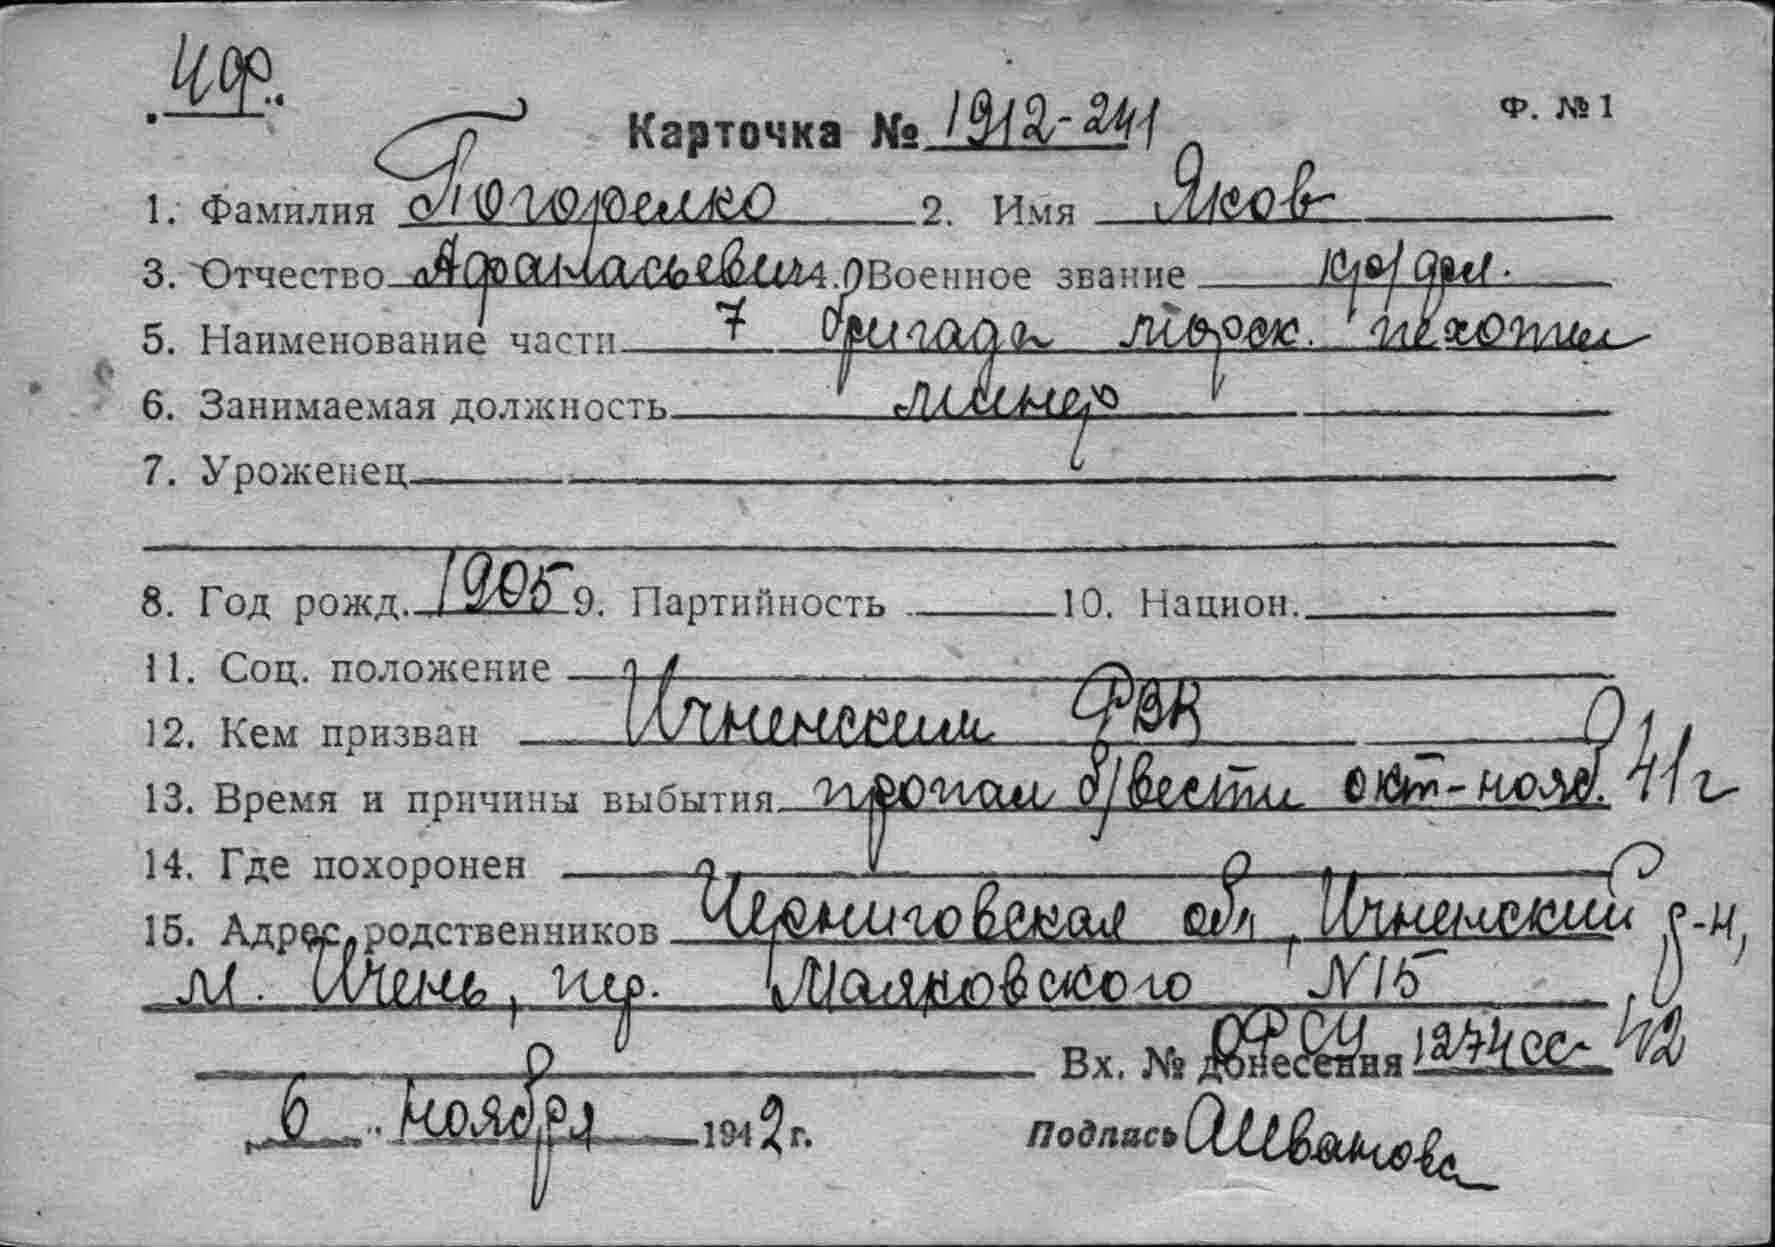 Ф. № 1
Карточка № 1912-241
1. Фамилия Погорелко 2. Имя Яков
3. Отчество Афанасьевич 4. Военное звание кр/фл.
5. Наименование части 7 бригада морск. пехоты
6. Занимаемая должность минер
7. Уроженец
8. Год рожд. 1905 9. Партийность 10. Национ.
11. Соц. положение
12. Кем призван Ичненским РВК
13. Время и причины выбытия пропал б/вести окт-нояб. 41 г
14. Где похоронен
15. Адрес родственников Черниговская обл, Ичненский р-н,
м. Ичень, пер. Маяковского N 15
Вх. № донесения ОРСУ 1274сс- 42
6 ноября 1942 г. Подпись АИванова